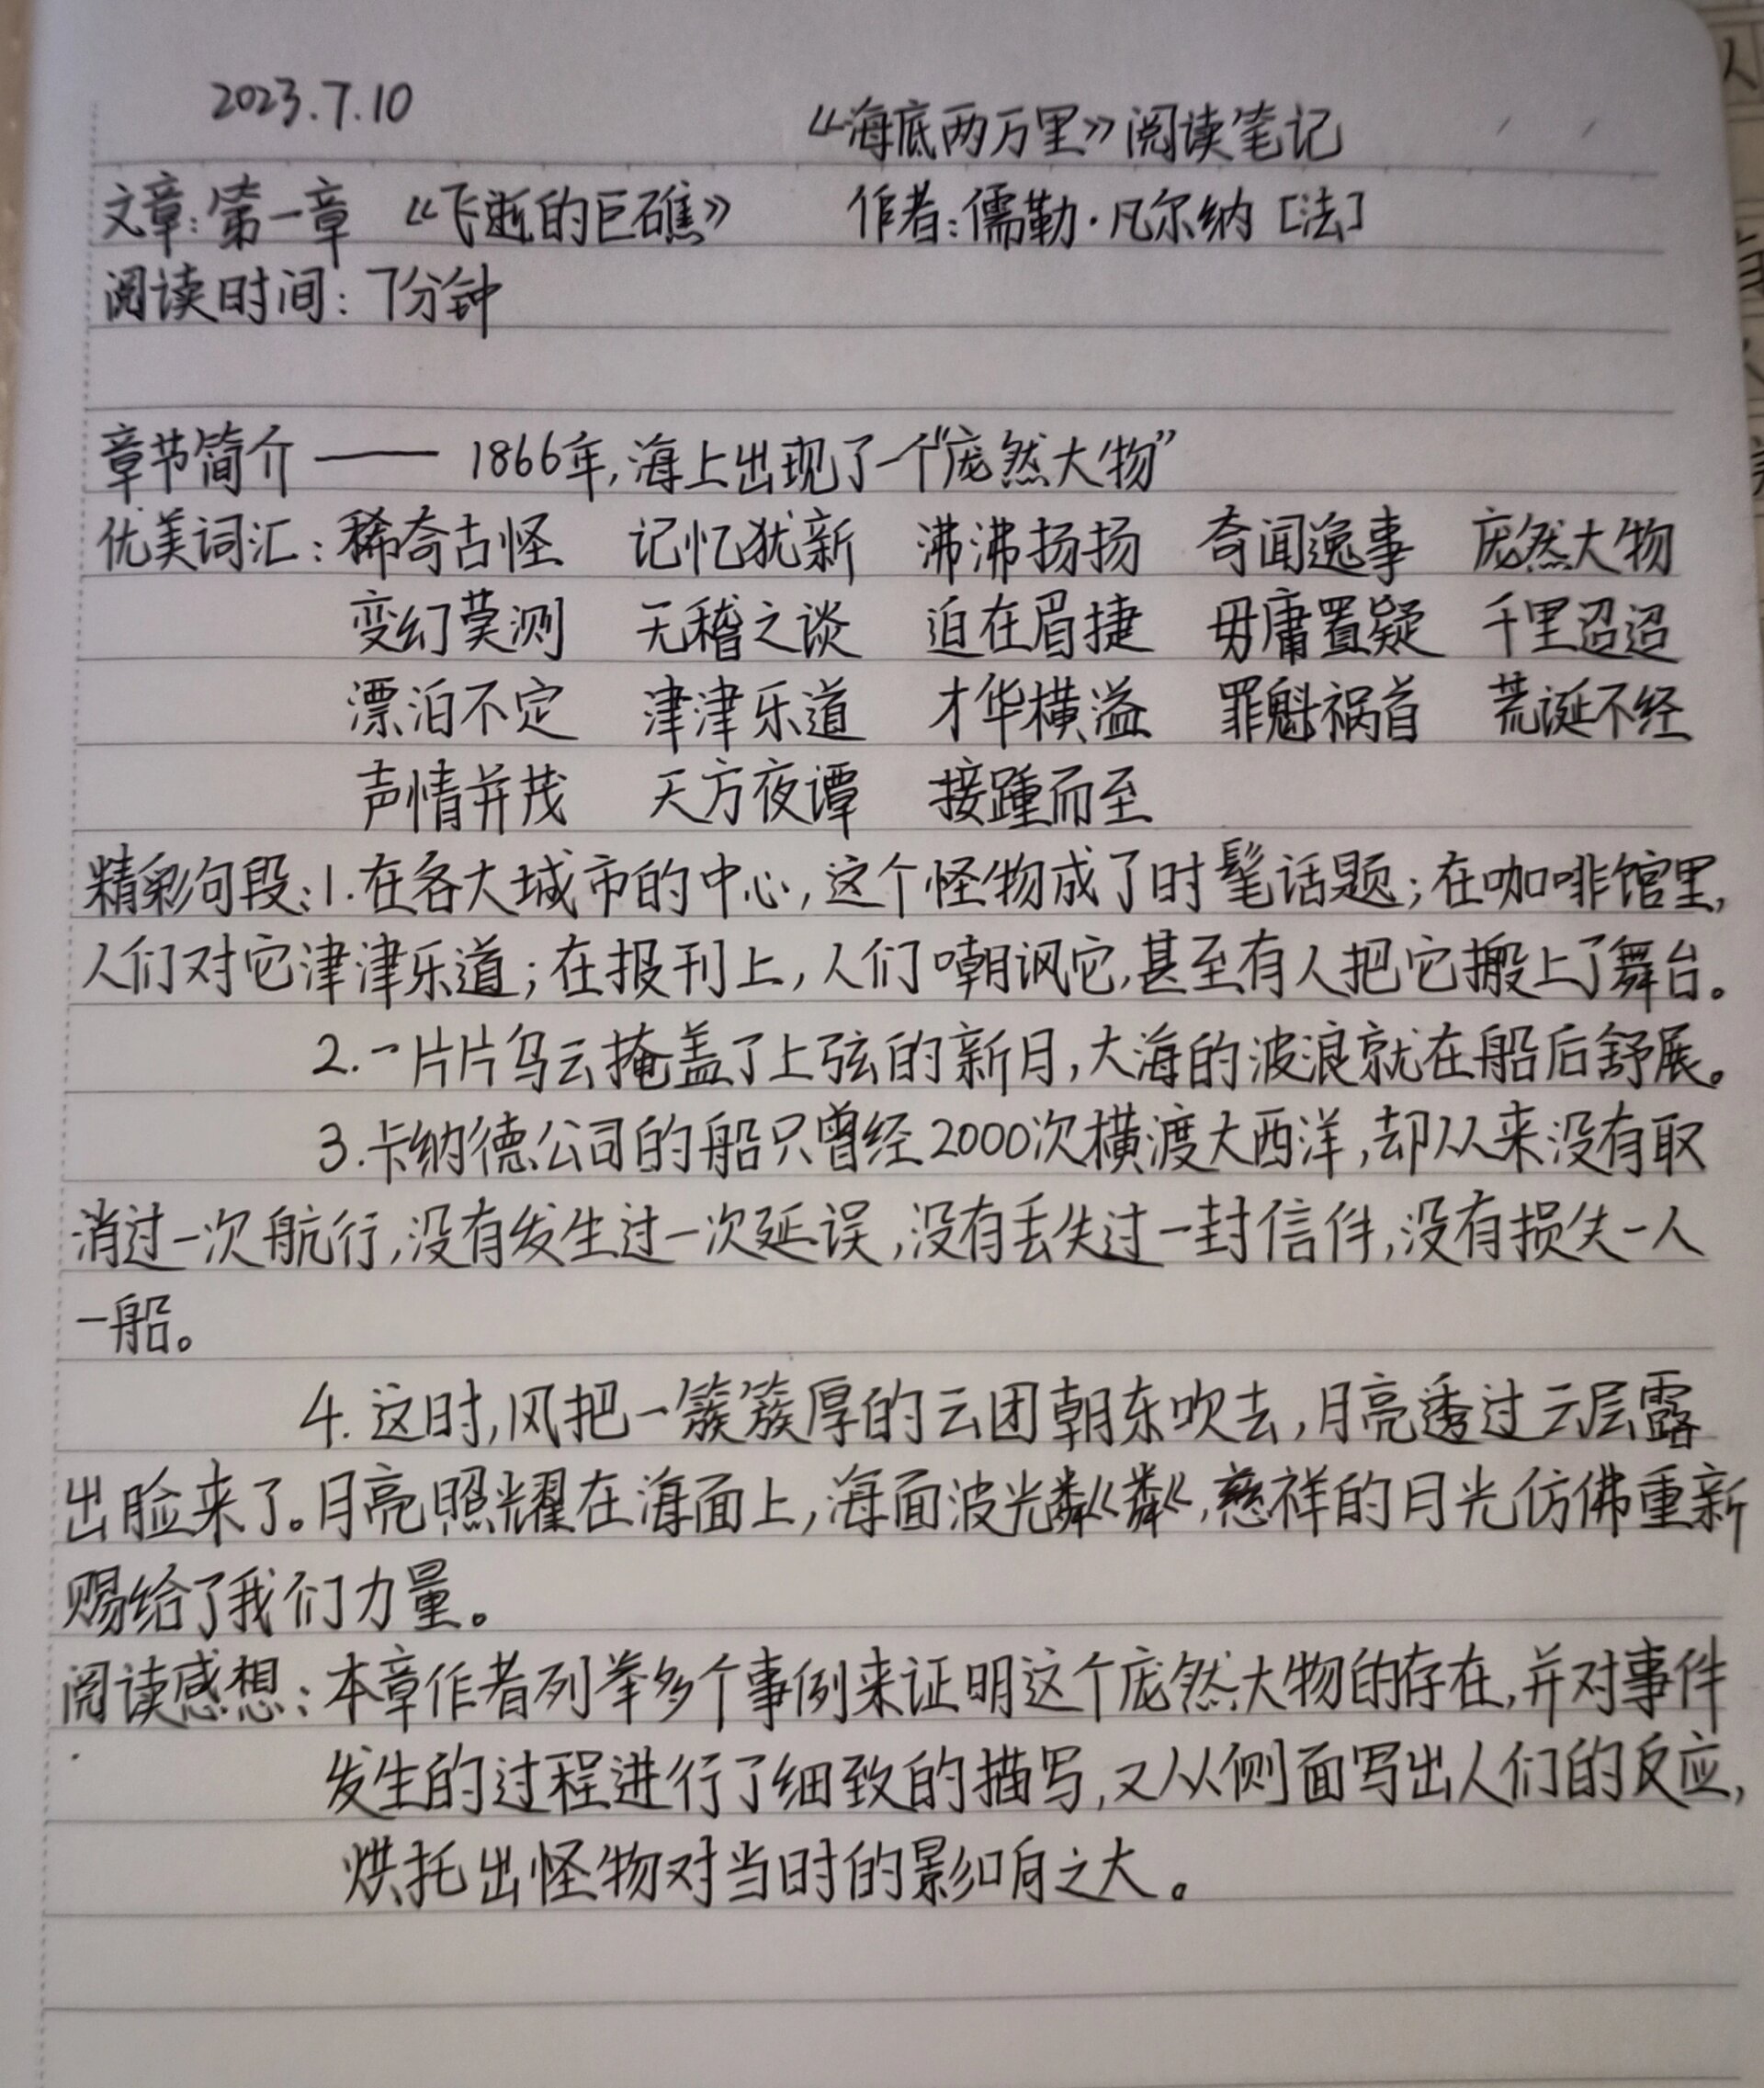 2023.7.10
《海底两万里》阅读笔记
文章:第一章 《飞逝的巨礁》 作者:儒勒·凡尔纳 [法]
阅读时间:7分钟
章节简介 —— 1866年,海上出现了一个“庞然大物”
优美词汇:稀奇古怪 记忆犹新 沸沸扬扬 奇闻逸事 庞然大物
变幻莫测 无稽之谈 迫在眉捷 毋庸置疑 千里迢迢
漂泊不定 津津乐道 才华横溢 罪魁祸首 荒诞不经
声情并茂 天方夜谭 接踵而至
精彩句段:1.在各大城市的中心,这个怪物成了时髦话题;在咖啡馆里,
人们对它津津乐道;在报刊上,人们嘲讽它,甚至有人把它搬上了舞台。
2.一片片乌云掩盖了上弦的新月,大海的波浪就在船后舒展。
3.卡纳德公司的船只曾经2000次横渡大西洋,却从来没有取
消过一次航行,没有发生过一次延误,没有丢失过一封信件,没有损失一人
一船。
4.这时,风把一簇簇厚的云团朝东吹去,月亮透过云层露
出脸来了。月亮照耀在海面上,海面波光粼粼,慈祥的月光仿佛重新
赐给了我们力量。
阅读感想:本章作者列举多个事例来证明这个庞然大物的存在,并对事件
发生的过程进行了细致的描写,又从侧面写出人们的反应,
烘托出怪物对当时的影响之大。